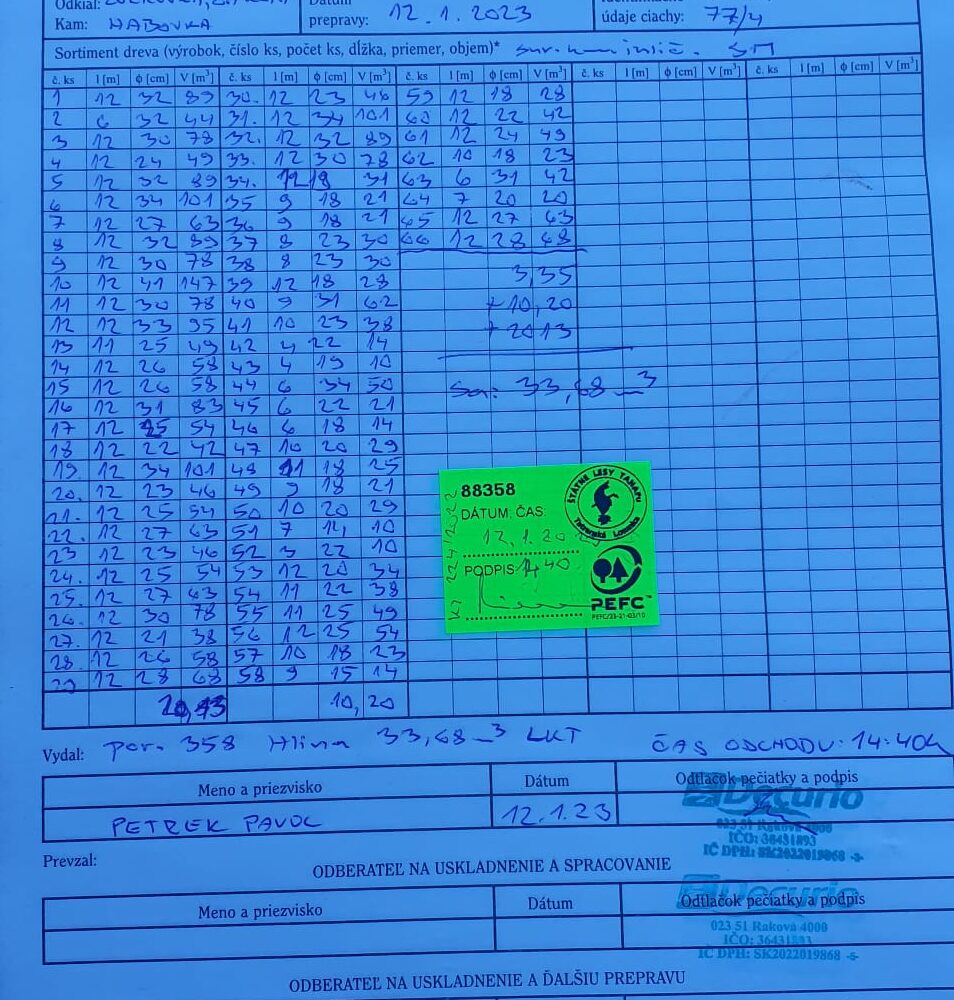 Odkiaľ:
Kam: HABOVKA
Dátum
prepravy: 12.1.2023
údaje ciachy: 77/4
Sortiment dreva (výrobok, číslo ks, počet ks, dĺžka, priemer, objem)* SM
č. ks l [m] ϕ [cm] V [m³] č. ks l [m] ϕ [cm] V [m³] č. ks l [m] ϕ [cm] V [m³] č. ks l [m] ϕ [cm] V [m³] č. ks l [m] ϕ [cm] V [m³]
1 12 32 89 30. 12 23 46 59 12 18 28
2 6 32 44 31. 12 34 101 60 12 22 42
3 12 30 78 32. 12 32 89 61 12 24 49
4 12 24 49 33. 12 30 78 62 10 18 23
5 12 32 89 34. 12 18 31 63 6 31 42
6 12 34 101 35 9 18 21 64 7 20 20
7 12 27 63 36 9 18 21 65 12 27 63
8 12 32 89 37 8 23 30 66 12 28 68
9 12 30 78 38 8 23 30
3,35
10 12 41 147 39 12 18 28
+ 10,20
11 12 30 78 40 9 31 62
+ 20 13
12 12 33 95 41 10 23 38
13 11 25 49 42 4 22 14
14 12 26 58 43 4 19 10
Sa: 33,68 m3
15 12 26 58 44 6 34 50
16 12 31 83 45 6 22 21
17 12 25 54 46 6 18 14
18 12 22 42 47 10 20 29
19. 12 34 101 48 11 18 25
20. 12 23 46 49 9 18 21
21. 12 25 54 50 10 20 29
22. 12 27 63 51 7 10
23 12 23 46 52 3 22 10
24. 12 25 54 53 12 20 34
25. 12 27 63 54 11 22 38
26. 12 30 78 55 11 25 49
27. 12 21 38 56 12 25 54
28. 12 26 58 57 10 18 23
29 12 28 68 58 9 15 14
20,13 10,20
88358
DÁTUM, ČAS:
12.1.20
PODPIS: 14 40
ŠTÁTNE LESY TANAPu
Tatranská Lomnica
PEFC™
PEFC/23-21-03/10
Vydal: por. 358 Hlina 33,68 m3 LKT ČAS ODCHODU: 14:40h
Meno a priezvisko Dátum Odtlačok pečiatky a podpis
PETREK PAVOL 12.1.23
Decurio
023 51 Raková 4000
IČO: 36431893
IČ DPH: SK2022019868 -3-
Prevzal:
ODBERATEĽ NA USKLADNENIE A SPRACOVANIE
Meno a priezvisko Dátum Odtlačok pečiatky a podpis
Decurio
023 51 Raková 4000
IČO: 36431893
IČ DPH: SK2022019868 -5-
ODBERATEĽ NA USKLADNENIE A ĎALŠIU PREPRAVU